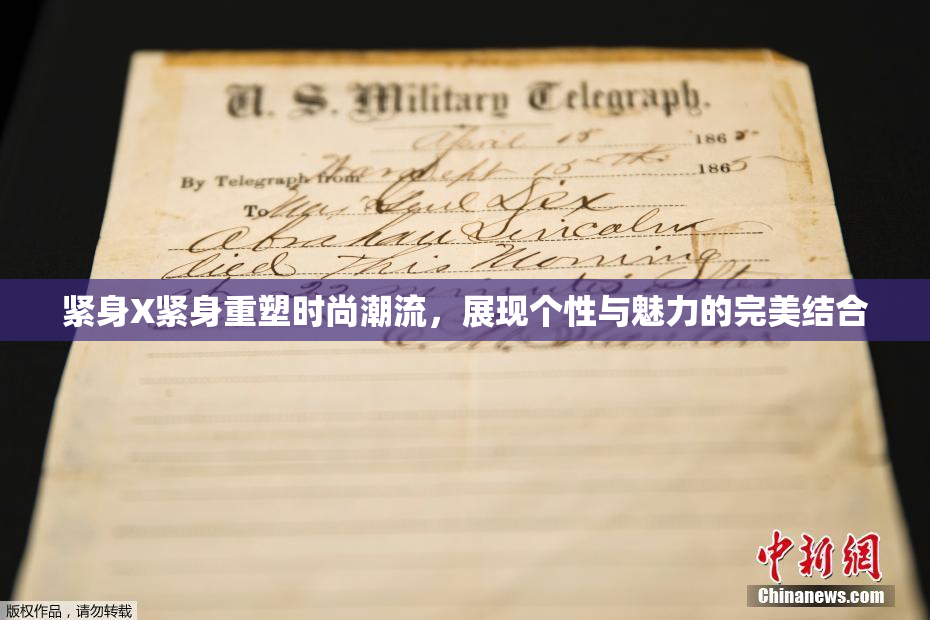 U. S. Military Telegraph.
April 15 1865-
By Telegraph from War Dept 15th 1865
To Maj Genl Dix
Abraham Lincoln
died This Morning
22 minutes after
紧身X紧身重塑时尚潮流，展现个性与魅力的完美结合
中新網
Chinanews.com
版权作品，请勿转载